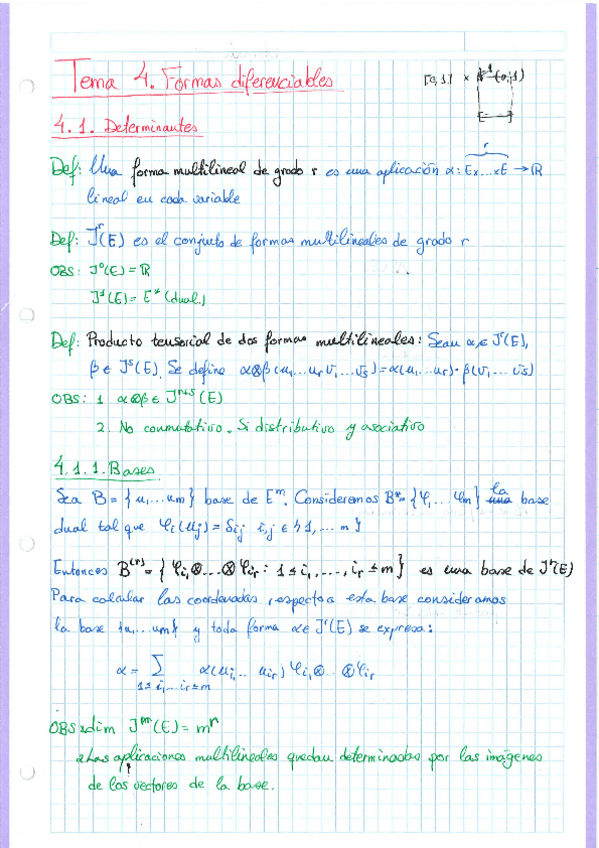 Tema 4. Formas diferenciables
[0,1] ×
4.1. Determinantes
r
Def: Una forma multilineal de grado r es una aplicación α: Ex...xE → ℝ
lineal en cada variable
Def: J^r(E) es el conjunto de formas multilineales de grado r
OBS: J⁰(E) = ℝ
J¹(E) = E* (dual)
Def: Producto tensorial de dos formas multilineales: Sean α ∈ J^r(E),
β ∈ J^s(E). Se define α⊗β(u₁...ur v₁...vs) = α(u₁...ur)·β(v₁...vs)
OBS: 1 α⊗β ∈ J^{r+s}(E)
2. No conmutativo. Si distributivo y asociativo
4.1.1. Bases
Sea B = {u₁...um} base de E^m. Consideramos B* = {φ₁...φm} la base
dual tal que φi(uj) = δij i,j ∈ {1,...m}
Entonces B^(r) = {φi₁⊗...⊗φir : 1≤i₁,...,ir≤m} es una base de J^r(E)
Para calcular las coordenadas respecto a esta base consideramos
la base {u₁...um} y toda forma α∈J^r(E) se expresa:
α = Σ α(ui₁...uir) φi₁⊗...⊗φir
1≤i₁...ir≤m
OBS 1 dim J^m(E) = m^n
2 Las aplicaciones multilineales quedan determinadas por las imágenes
de los vectores de la base.